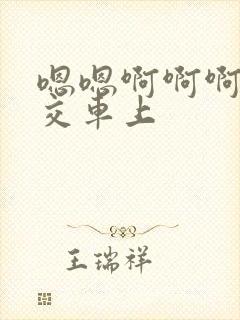 嗯嗯啊啊啊
交车上
王瑞祥